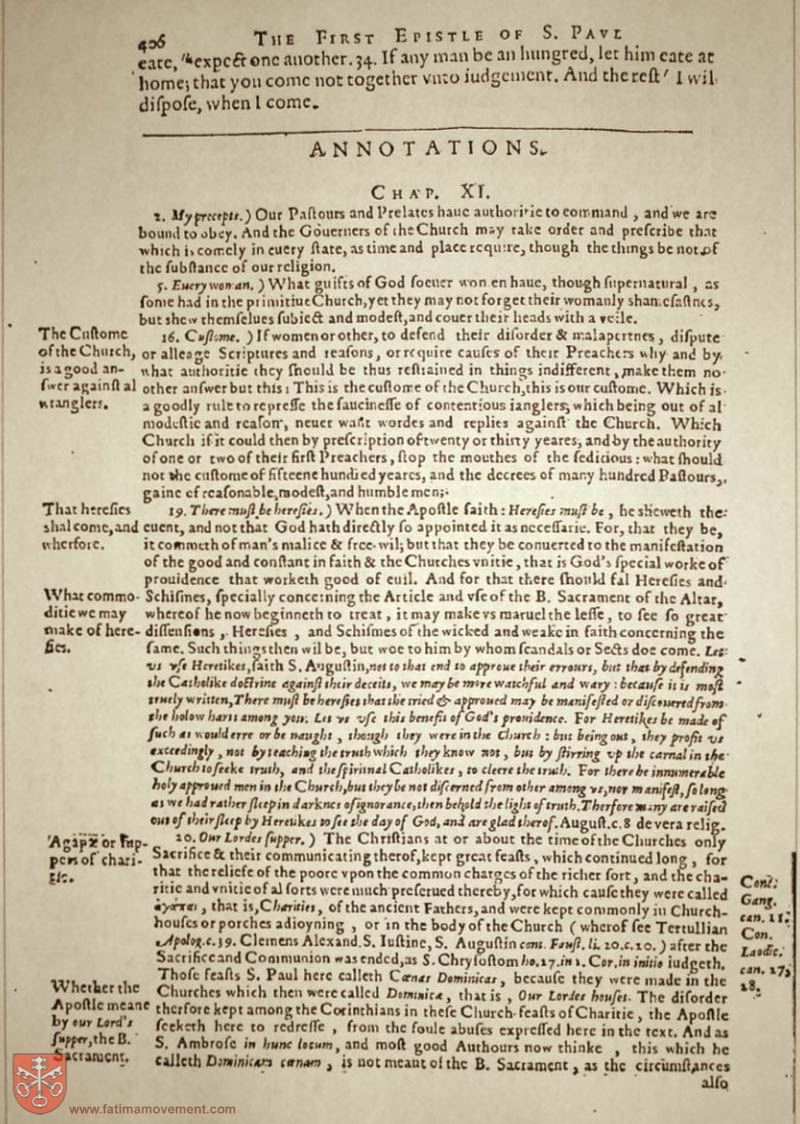 406 THE FIRST EPISTLE OF S. PAVL
eate, "expect one another. 34. If any man be an hungred, let him eate at
home; that you come not together vnto iudgement. And the reſt' I wil
diſpoſe, when I come.
ANNOTATIONS.
CHAP. XI.
2. My precepts.) Our Paſtours and Prelates haue authoritie to command, and we are
bound to obey. And the Gouerners of the Church may take order and preſcribe that
which is comely in euery ſtate, as time and place require, though the things be not of
the ſubſtance of our religion.
5. Euery woman.) What guifts of God ſoeuer women haue, though ſupernatural, as
ſome had in the primitiue Church, yet they may not forget their womanly shamefaſtnes,
but shew themſelues ſubiect and modeſt, and couer their heads with a veile.
The Cuſtome
of the Church,
is a good an-
ſwer againſt al
wranglers.
16. Cuſtome.) If women or other, to defend their diſorder & malapertnes, diſpute
or alleage Scriptures and reaſons, or require cauſes of their Preachers why and by
what authoritie they ſhould be thus reſtrained in things indifferent, make them no
other anſwer but this: This is the cuſtome of the Church, this is our cuſtome. Which is
a goodly rule to repreſſe the ſaucineſſe of contentious ianglers, which being out of al
modeſtie and reaſon, neuer want wordes and replies againſt the Church. Which
Church if it could then by preſcription of twenty or thirty yeares, and by the authority
of one or two of their firſt Preachers, ſtop the mouthes of the ſedicious: what ſhould
not the cuſtome of fifteene hundred yeares, and the decrees of many hundred Paſtours,
gaine of reaſonable, modeſt, and humble men;
That hereſies
shal come, and
wherfore.
19. There muſt be hereſies.) When the Apoſtle ſaith: Hereſies muſt be, he sheweth the
euent, and not that God hath directly ſo appointed it as neceſſarie. For, that they be,
it commeth of man's malice & free-wil; but that they be conuerted to the manifeſtation
of the good and conſtant in faith & the Churches vnitie, that is God's ſpecial worke of
prouidence that worketh good of euil. And for that there ſhould fal Hereſies and
What commo-
ditie we may
make of here-
ſies.
Schiſmes, ſpecially concerning the Article and vſe of the B. Sacrament of the Altar,
whereof he now beginneth to treat, it may make vs maruel the leſſe, to ſee ſo great
diſſenſions, Hereſies, and Schiſmes of the wicked and weake in faith concerning the
ſame. Such things then wil be, but woe to him by whom ſcandals or Sects doe come. Let
vs vſe Heretikes, ſaith S. Auguſtin, not to that end to approue their errours, but that by defending
the Catholike doctrine againſt their deceits, we may be more watchful and wary: becauſe it is moſt
truely written, There muſt be hereſies that the tried & approued may be manifeſted or diſcouered from
the holow harts among you. Let vs vſe this benefit of God's prouidence. For Heretikes be made of
ſuch as would erre or be naught, though they were in the Church: but being out, they profit vs
exceedingly, not by teaching the truth which they know not, but by ſtirring vp the carnal in the
Church to ſeeke truth, and the ſpiritual Catholikes, to cleere the truth. For there be innumerable
holy approued men in the Church, but they be not diſcerned from other among vs, nor manifeſt, ſo long
as we had rather ſleep in darknes of ignorance, then behold the light of truth. Therfore many are raiſed
out of their ſleep by Heretikes to ſee the day of God, and are glad therof. Auguſt. c. 8 de vera relig.
Agapæ or ſup-
pers of chari-
tie.
20. Our Lordes ſupper.) The Chriſtians at or about the time of the Churches only
Sacrifice & their communicating therof, kept great feaſts, which continued long, for
that the reliefe of the poore vpon the common charges of the richer ſort, and the cha-
ritie and vnitie of al ſorts were much preſerued thereby, for which cauſe they were called
ἀγάπαι, that is, Charities, of the ancient Fathers, and were kept commonly in Church-
houſes or porches adioyning, or in the body of the Church (wherof ſee Tertullian
Apolog. c. 39. Clemens Alexand. S. Iuſtine, S. Auguſtin cont. Fauſt. li. 20. c. 20.) after the
Sacrifice and Communion was ended, as S. Chryſoſtom ho. 27. in 1. Cor. in initio iudgeth.
Conc.
Gang.
can. 11.
Con.
Laodic.
can. 27,
28.
Thoſe feaſts S. Paul here calleth Cœnas Dominicas, becauſe they were made in the
Whether the
Apoſtle meane
by our Lord's
ſupper, the B.
Sacrament.
Churches which then were called Dominica, that is, Our Lordes houſes. The diſorder
therfore kept among the Corinthians in theſe Church-feaſts of Charitie, the Apoſtle
ſeeketh here to redreſſe, from the foule abuſes expreſſed here in the text. And as
S. Ambroſe in hunc locum, and moſt good Authours now thinke, this which he
calleth Dominicam cœnam, is not meant of the B. Sacrament, as the circumſtances
alſo
www.fatimamovement.com